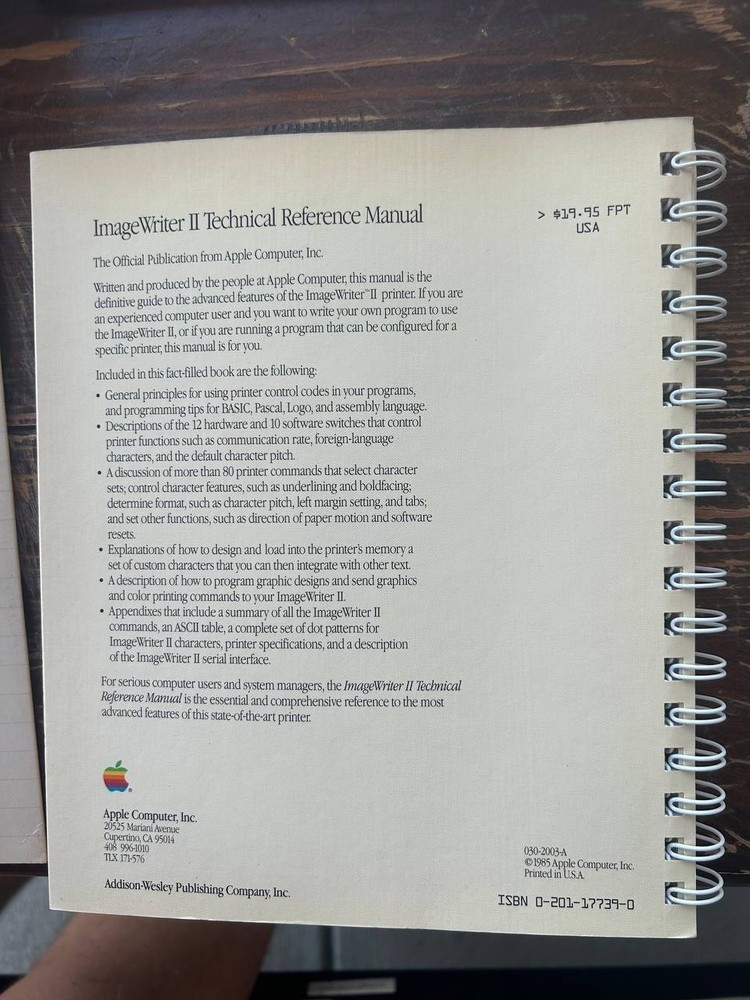 ImageWriter II Technical Reference Manual
> $19.95 FPT
USA
The Official Publication from Apple Computer, Inc.
Written and produced by the people at Apple Computer, this manual is the
definitive guide to the advanced features of the ImageWriter™ II printer. If you are
an experienced computer user and you want to write your own program to use
the ImageWriter II, or if you are running a program that can be configured for a
specific printer, this manual is for you.
Included in this fact-filled book are the following:
• General principles for using printer control codes in your programs,
and programming tips for BASIC, Pascal, Logo, and assembly language.
• Descriptions of the 12 hardware and 10 software switches that control
printer functions such as communication rate, foreign-language
characters, and the default character pitch.
• A discussion of more than 80 printer commands that select character
sets; control character features, such as underlining and boldfacing;
determine format, such as character pitch, left margin setting, and tabs;
and set other functions, such as direction of paper motion and software
resets.
• Explanations of how to design and load into the printer's memory a
set of custom characters that you can then integrate with other text.
• A description of how to program graphic designs and send graphics
and color printing commands to your ImageWriter II.
• Appendixes that include a summary of all the ImageWriter II
commands, an ASCII table, a complete set of dot patterns for
ImageWriter II characters, printer specifications, and a description
of the ImageWriter II serial interface.
For serious computer users and system managers, the ImageWriter II Technical
Reference Manual is the essential and comprehensive reference to the most
advanced features of this state-of-the-art printer.
Apple Computer, Inc.
20525 Mariani Avenue
Cupertino, CA 95014
408 996-1010
TLX 171-576
Addison-Wesley Publishing Company, Inc.
030-2003-A
©1985 Apple Computer, Inc.
Printed in U.S.A.
ISBN 0-201-17739-0